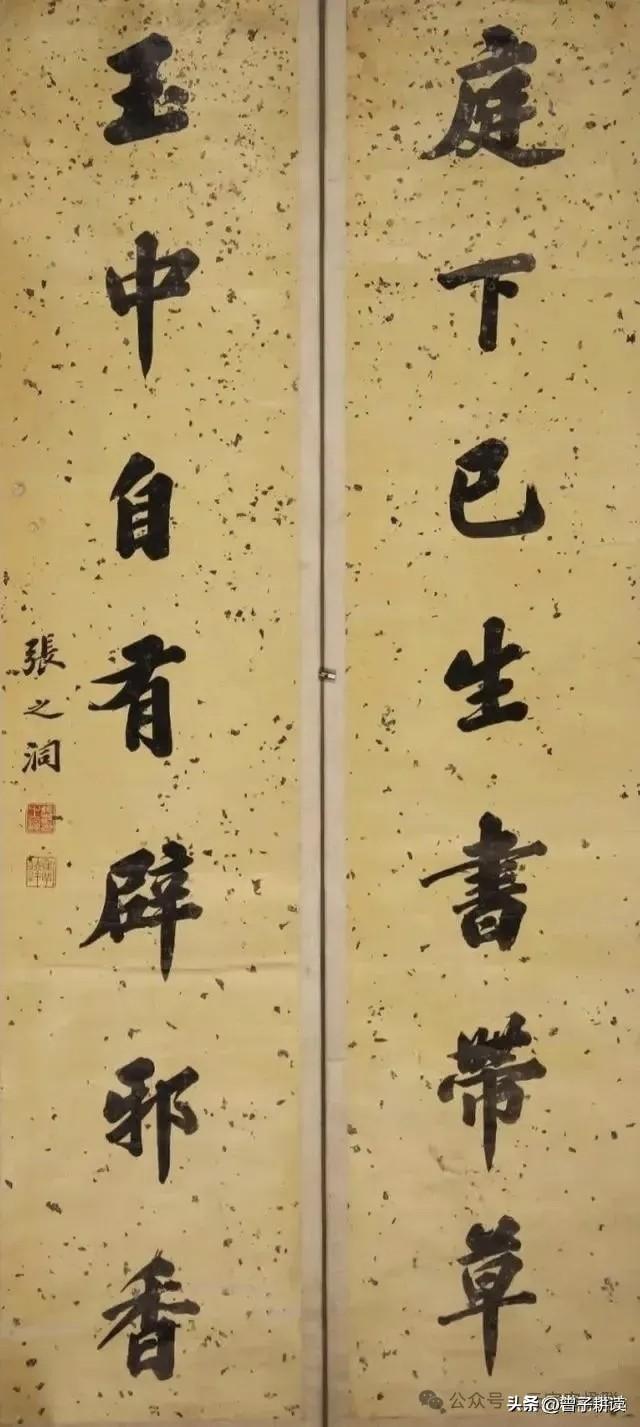 庭下已生書帶草
玉中自有辟邪香
張之洞
公众号
头条 @曾子耕读